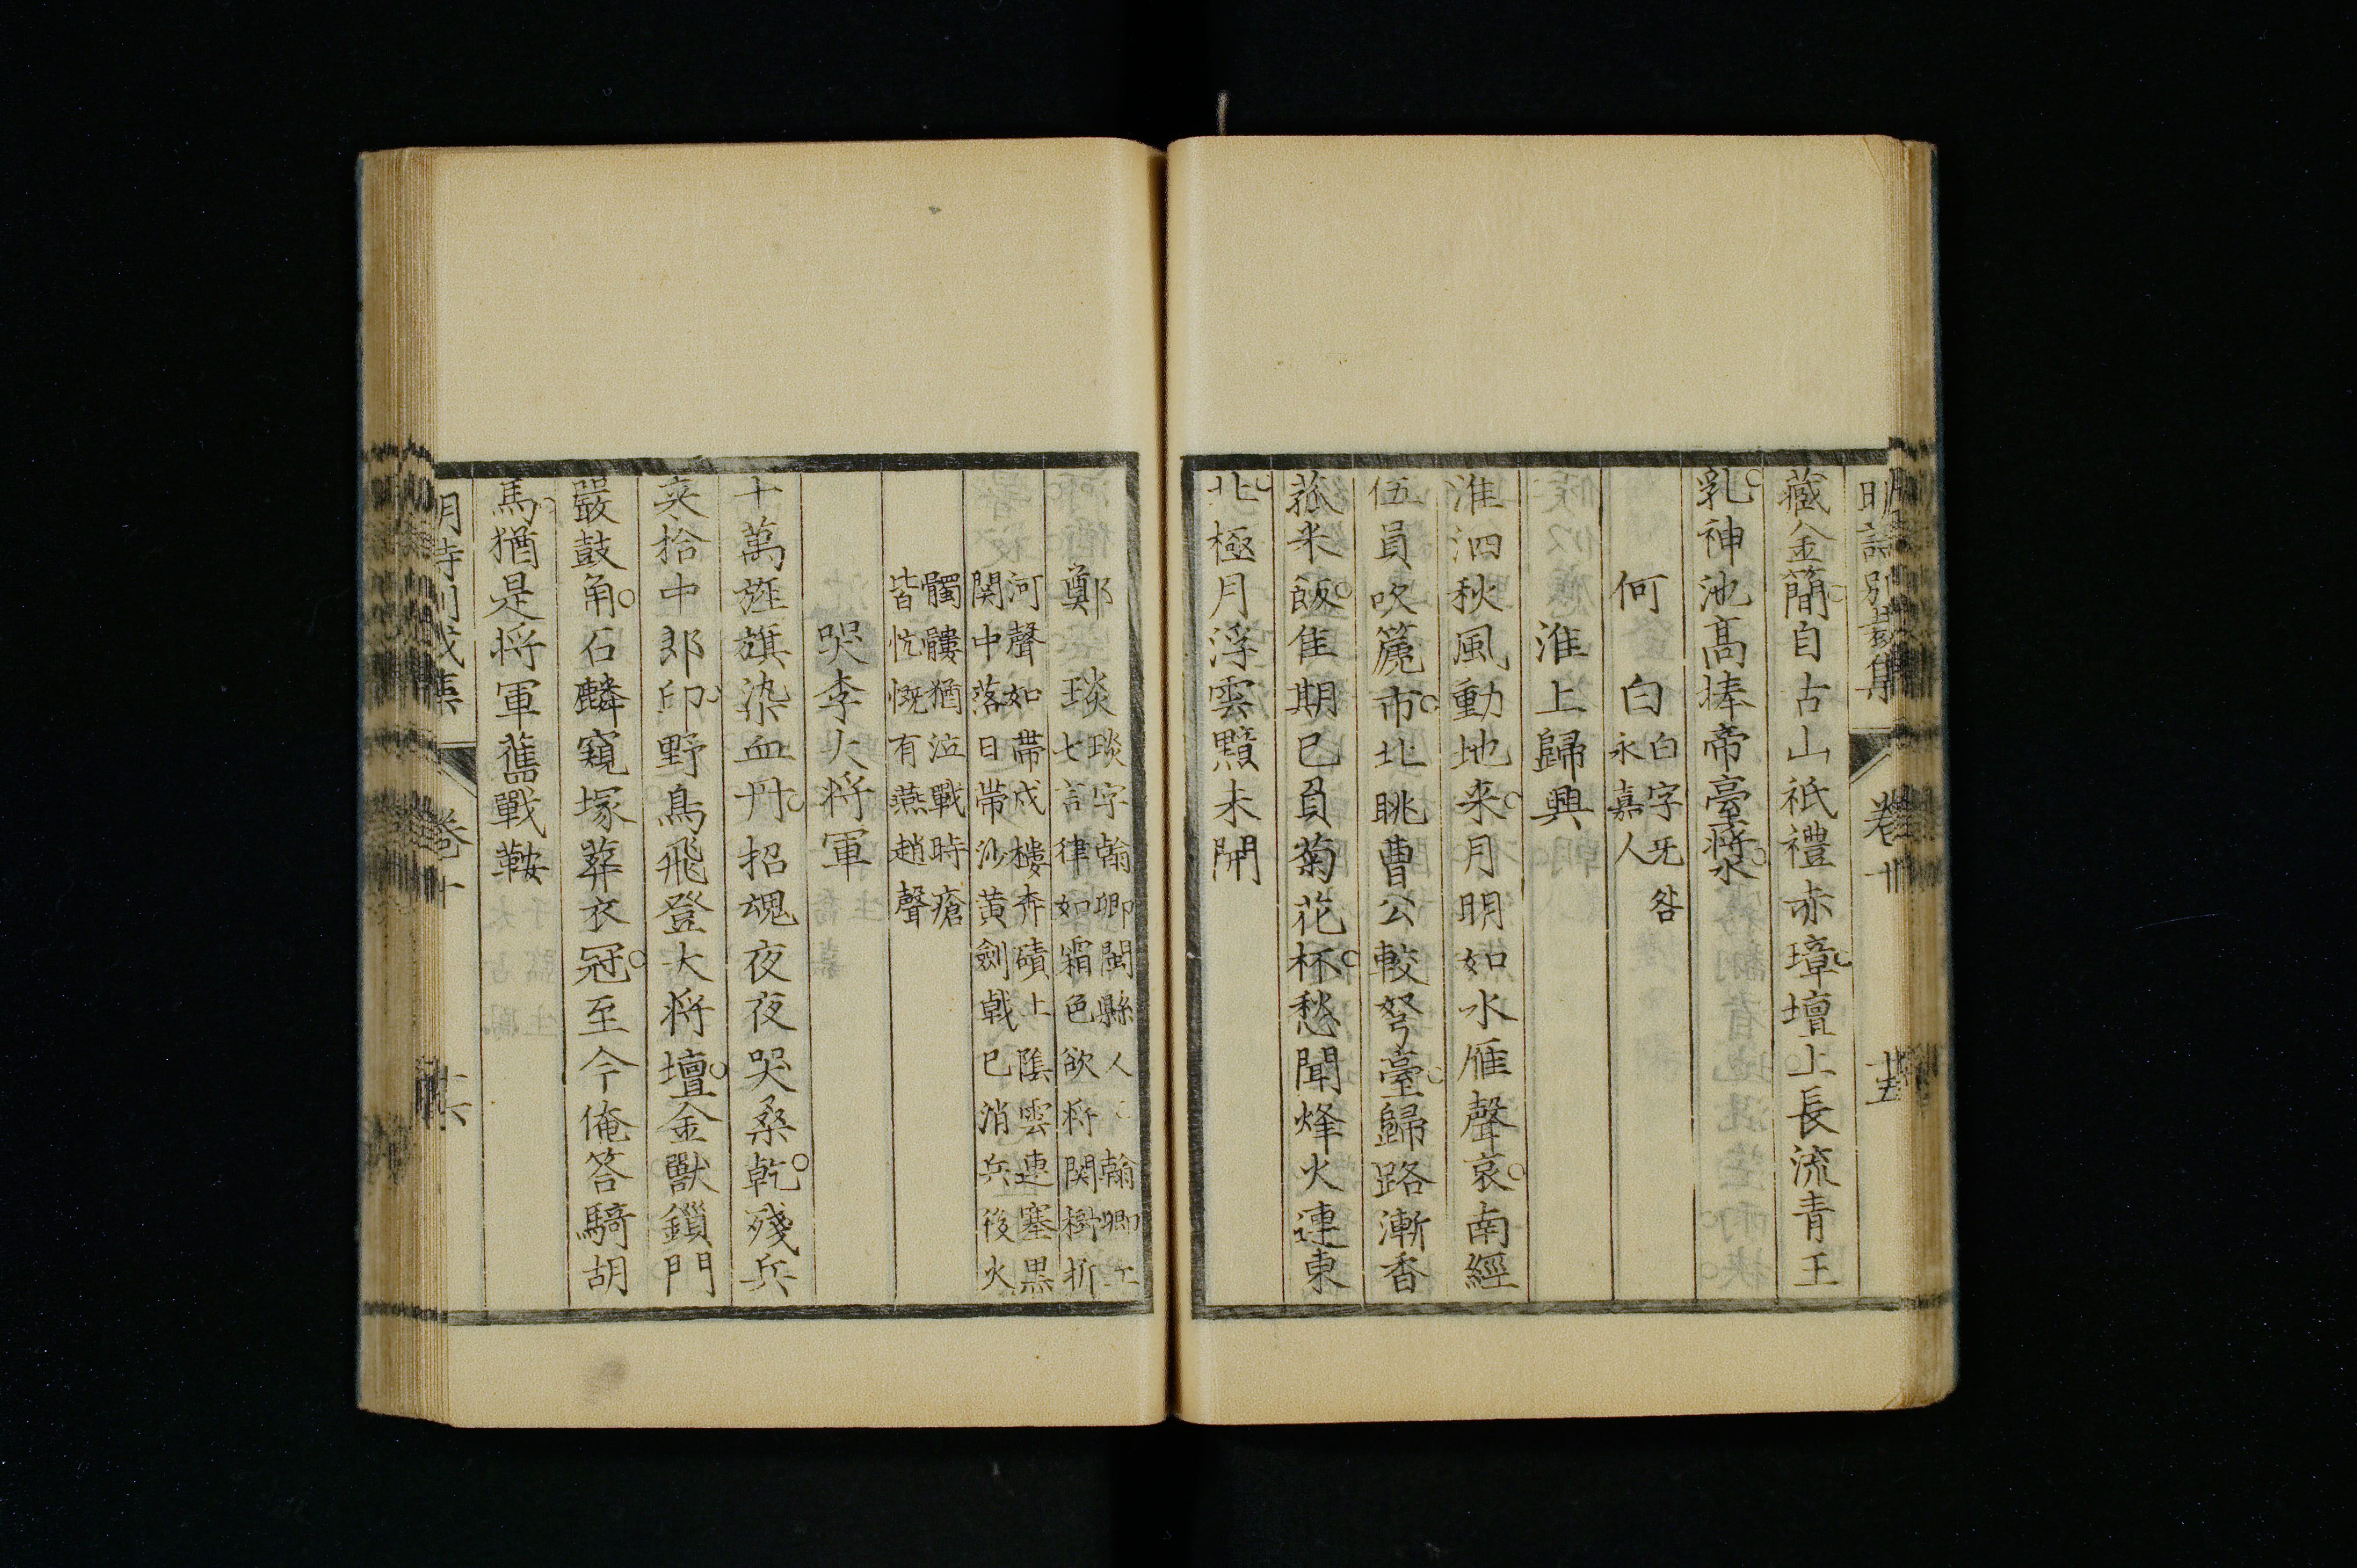 明詩別裁集 卷十 十五
藏金簡自古山祇禮赤璋壇上長流青玉
乳神池高捧帝臺漿水
何白白字无咎
永嘉人
淮上歸興
淮泗秋風動地来月明如水雁聲哀南經
伍員吹篪市北眺曹公較弩臺歸路漸香
菰米飯佳期已負菊花杯愁聞烽火連東
北極月浮雲黯未開
鄭琰琰字翰卿閩縣人翰卿工
七言律如霜色欲将関樹折
河聲如帶戍樓奔磧上陰雲連塞黒
関中落日帯沙黄劍戟已消兵後火
髑髏猶泣戰時瘡
皆忼慨有燕趙聲
哭李大将軍
十萬旌旗染血丹招魂夜夜哭桑乾殘兵
夾拾中郎印野鳥飛登大将壇金獸鎖門
嚴鼓角石麟窺塚葬衣冠至今俺答騎胡
馬猶是将軍舊戰鞍
明詩別裁集 卷十 十六